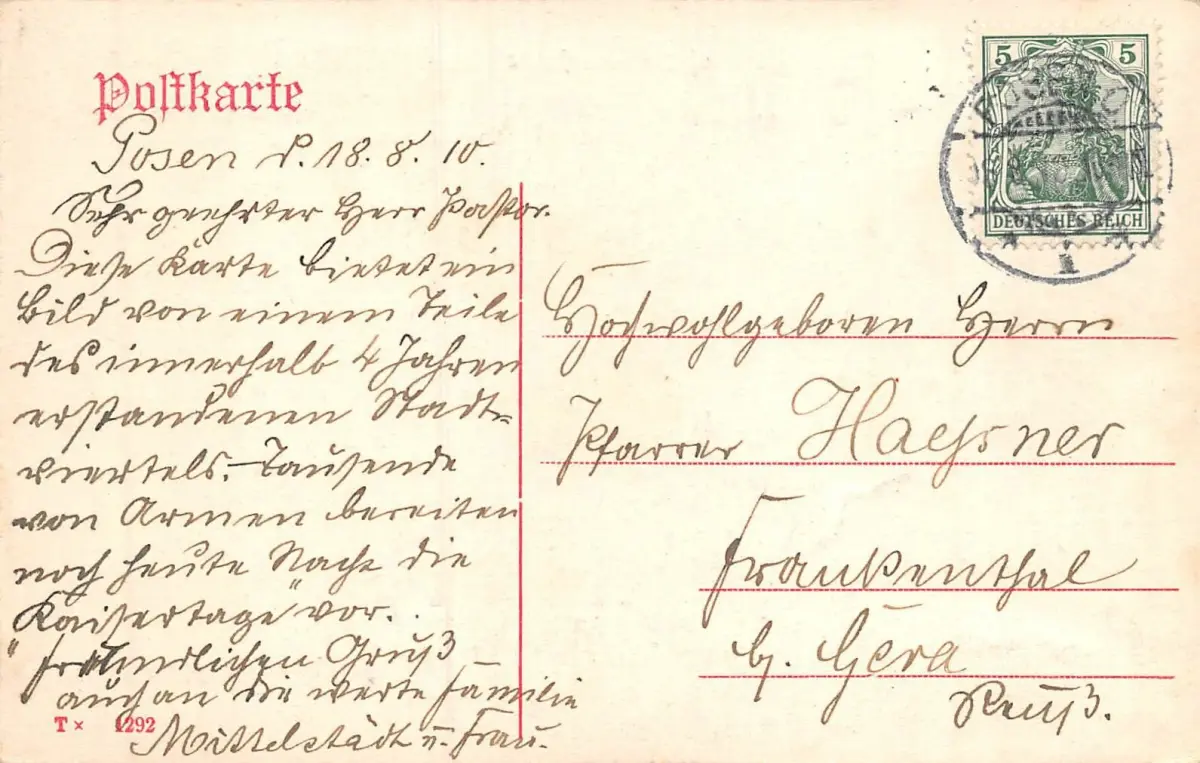 Postkarte
Posen d. 18. 8. 10.
Sehr geehrter Herr Pastor.
Diese Karte bietet ein
Bild von einem Teile
des innerhalb 4 Jahren
erstandenen Stadt-
viertels. – Tausende
von Armen bereiten
noch heute Nacht die
"Kaisertage" vor.
Freundlichen Gruß
auch an die werte Familie
Mittelstädt u. Frau.
T × 1292
5 5
POSEN
DEUTSCHES REICH
1
Hochwohlgeboren Herrn
Pfarrer Haessner
Frankenthal
b. Gera
Reuß.